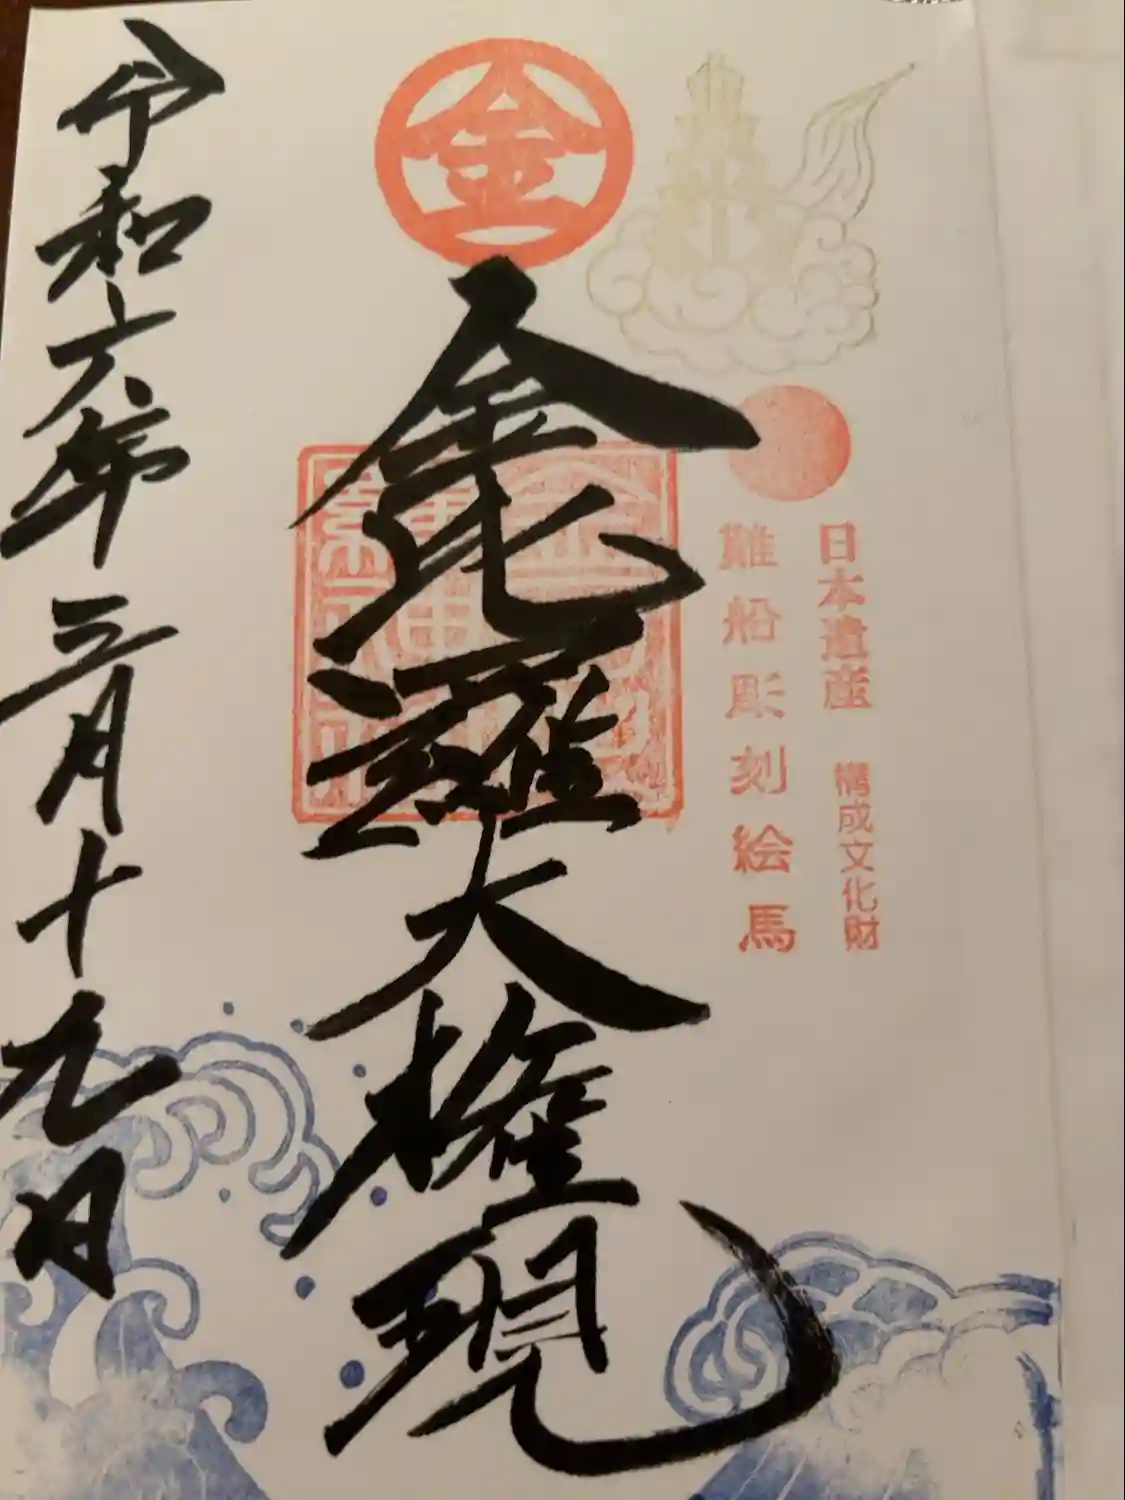 日本遺産 構成文化財
難船彫刻絵馬
金
金毘羅大権現
令和六年三月十九日